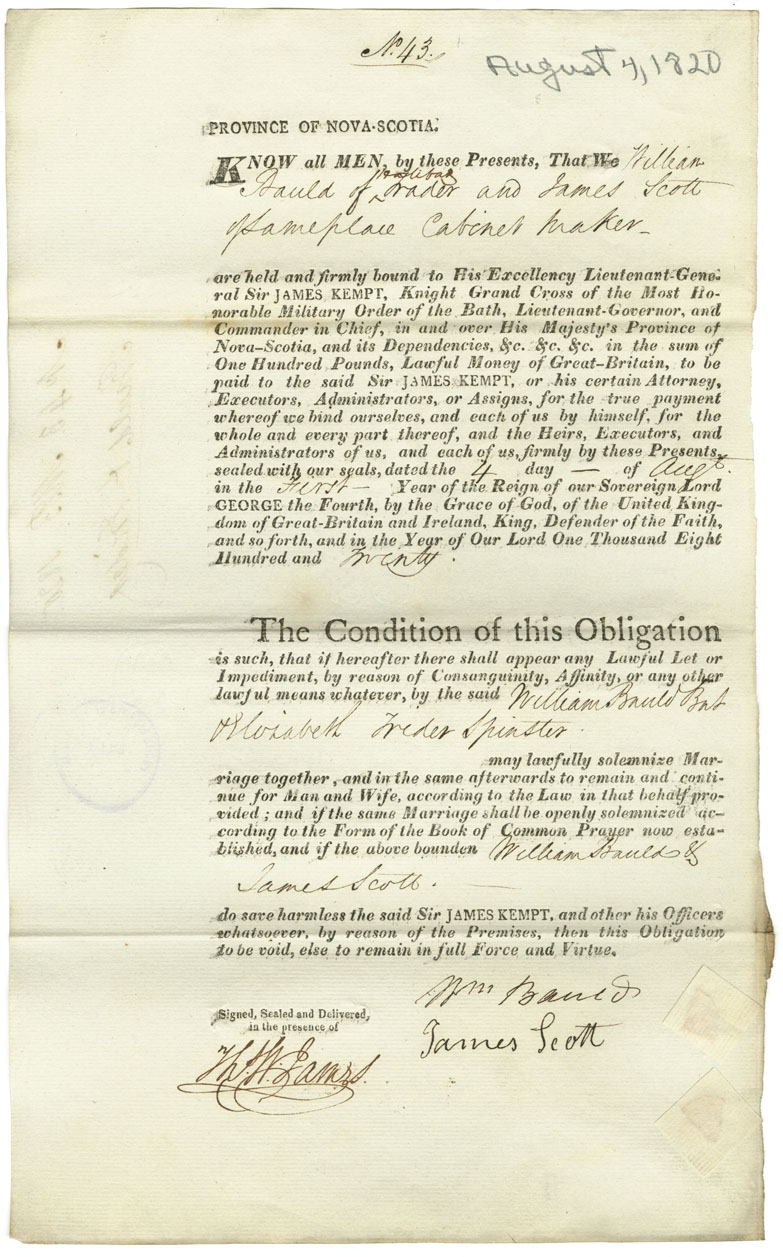 No. 43.
August 4, 1820
PROVINCE OF NOVA-SCOTIA.
KNOW all MEN, by these Presents, That We William
Halifax
Bauld of ^ Trader and James Scott
of same place Cabinet Maker -
are held and firmly bound to His Excellency Lieutenant-Gene-
ral Sir JAMES KEMPT, Knight Grand Cross of the Most Ho-
norable Military Order of the Bath, Lieutenant-Governor, and
Commander in Chief, in and over His Majesty's Province of
Nova-Scotia, and its Dependencies, &c. &c. &c. in the sum of
One Hundred Pounds, Lawful Money of Great-Britain, to be
paid to the said Sir JAMES KEMPT, or his certain Attorney,
Executors, Administrators, or Assigns, for the true payment
whereof we bind ourselves, and each of us by himself, for the
whole and every part thereof, and the Heirs, Executors, and
Administrators of us, and each of us, firmly by these Presents,
sealed with our seals, dated the 4 day — of Augt.
in the First — Year of the Reign of our Sovereign Lord
GEORGE the Fourth, by the Grace of God, of the United King-
dom of Great-Britain and Ireland, King, Defender of the Faith,
and so forth, and in the Year of Our Lord One Thousand Eight
Hundred and Twenty.
The Condition of this Obligation
is such, that if hereafter there shall appear any Lawful Let or
Impediment, by reason of Consanguinity, Affinity, or any other
lawful means whatever, by the said William Bauld Bat
& Elizabeth Treder Spinster.
may lawfully solemnize Mar-
riage together, and in the same afterwards to remain and conti-
nue for Man and Wife, according to the Law in that behalf pro-
vided; and if the same Marriage shall be openly solemnized ac-
cording to the Form of the Book of Common Prayer now esta-
blished, and if the above bounden William Bauld &
James Scott. —
do save harmless the said Sir JAMES KEMPT, and other his Officers
whatsoever, by reason of the Premises, then this Obligation
to be void, else to remain in full Force and Virtue.
Wm Bauld
Signed, Sealed and Delivered,
in the presence of
James Scott
Th. W. James.